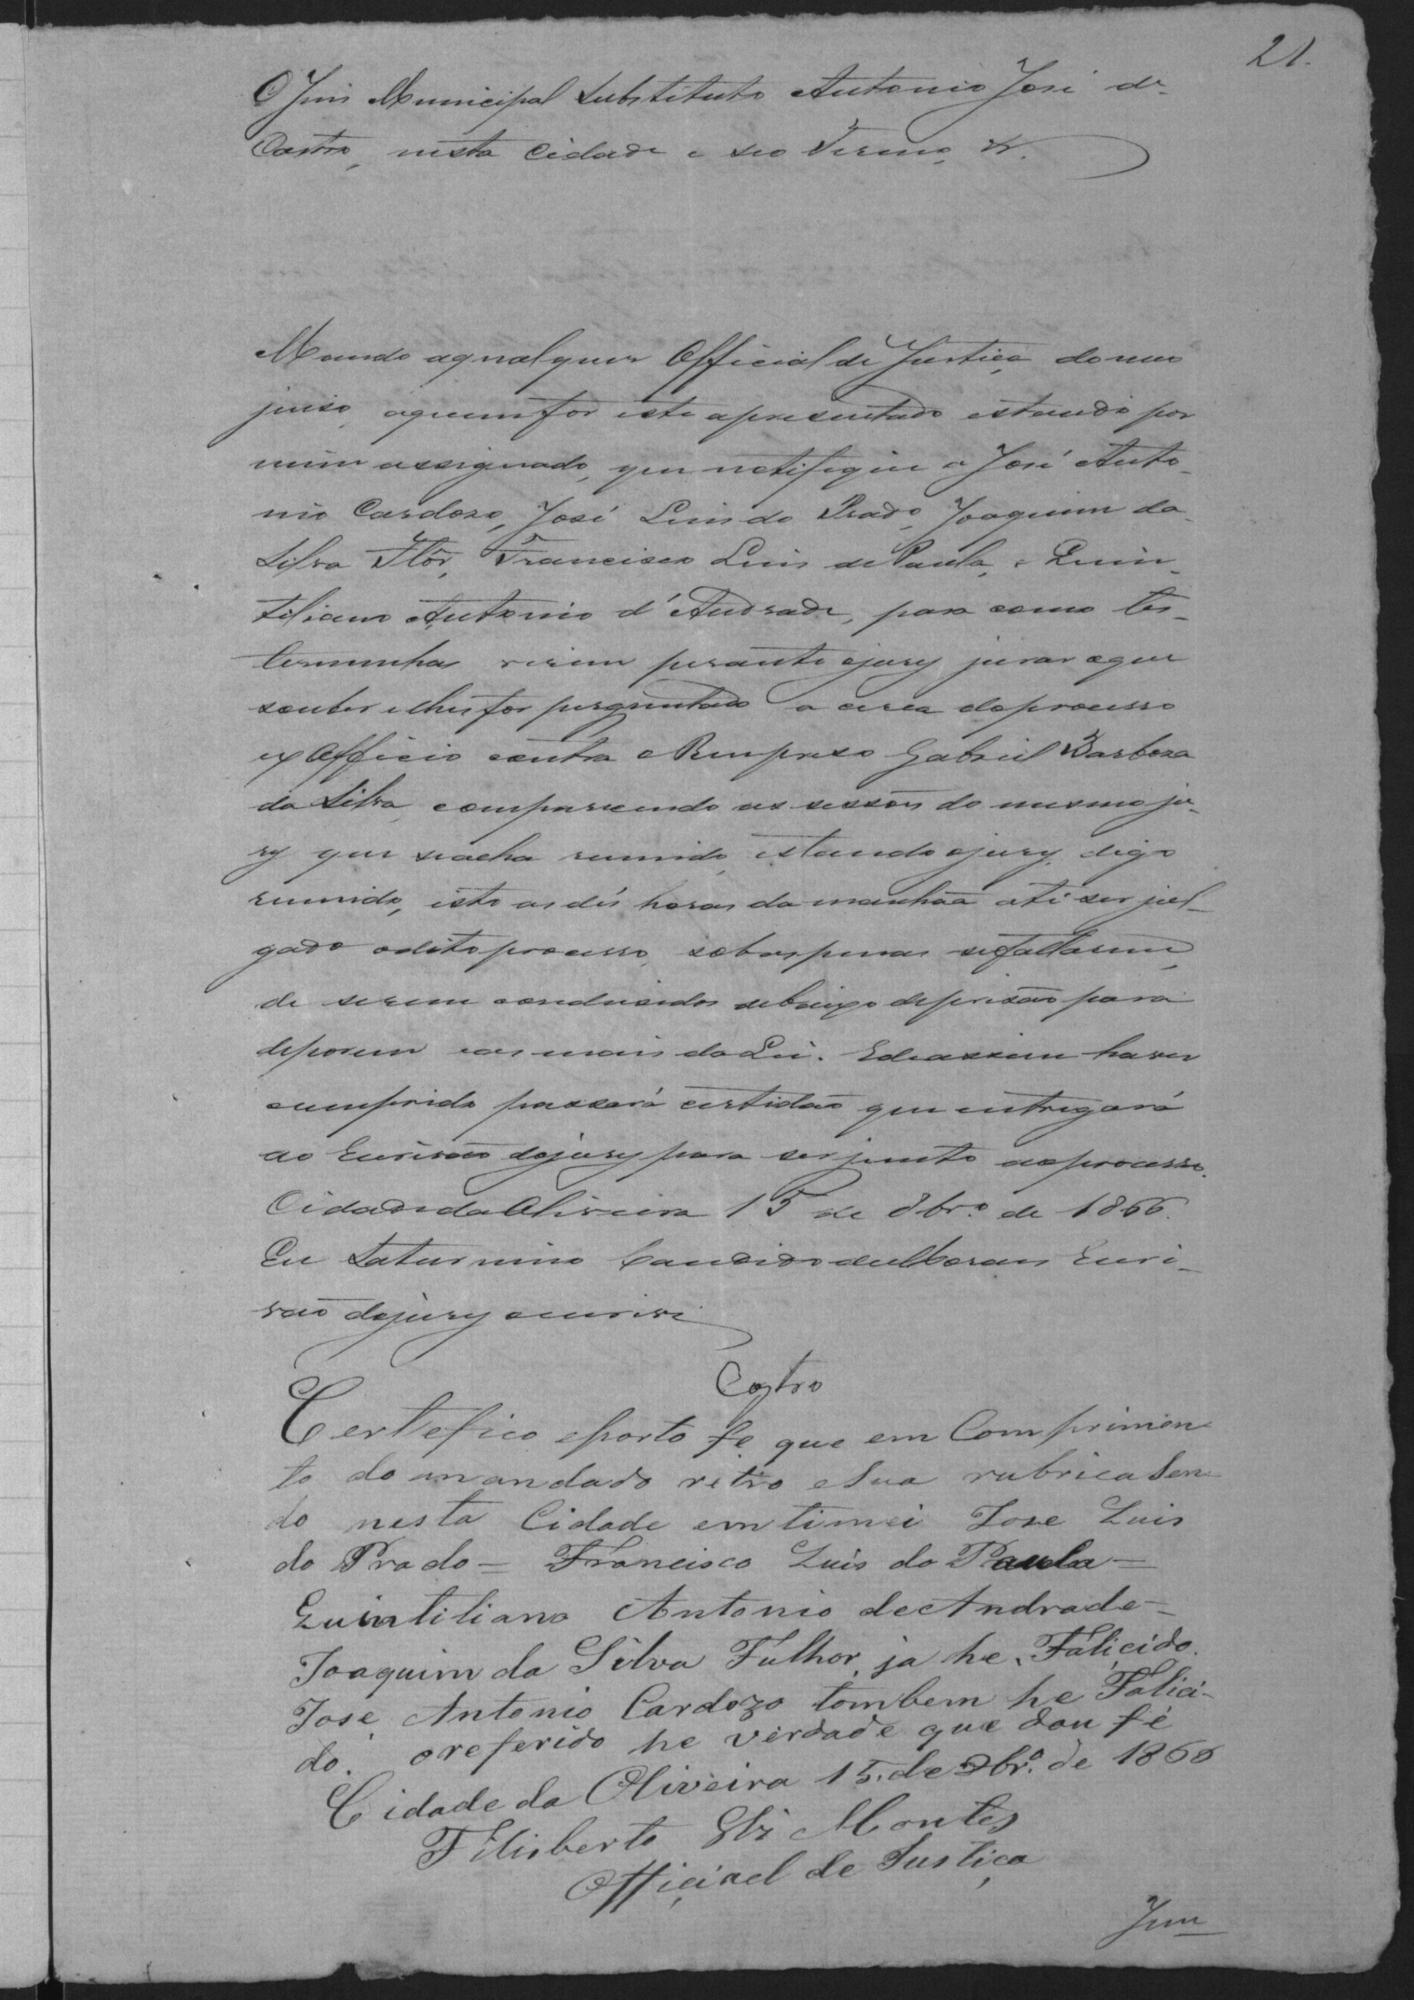 21.
O Juis Municipal Substituto Antonio José de
Castro, nesta Cidade e seo Termo &.
Mando aqualquer Official de Justiça do meo
juiso, aquem for este apresentado estando por
mim assignado, que notifique a José Anto-
nio Cardoso, José Luis do Prado, Joaquim da
Silva Flôr, Francisco Luis de Paula, e Quin-
tiliano Antonio d'Andrade, para como tes-
temunhas virem perante ojury jurar oque
souber elhes for perguntado a cerca doprocesso
ex Officio contra o Reu preso Gabriel Barboza
da Silva, comparecendo as sessões do mesmo ju-
ry que seacha reunido, estando ojury, digo
reunido, isto as dés horas da manhãa até ser jul-
gado odito processo, sobaspenas sefaltarem,
de serem condusidos debaixo deprisão para
deporem eas mais da Lei. Edeassim haver
cumprido passará certidão que entregará
ao Escrivão dojury para ser junto aoprocesso.
Cidade da Oliveira 15 de 8br.º de 1866.
Eu Saturnino Candido de Moraes Escri-
vão dojury o escrivi
Castro
Certefico eporto fe que em Comprimen-
to do mandado retro eSua rubrica Sen-
do nesta Cidade emtimei Jose Luis
do Prado = Francisco Luis de Paula =
Quintiliano Antonio de Andrade =
Joaquim da Silva Fulhor, ja he Falicido.
Jose Antonio Cardozo tombem he Falici-
do. oreferido he verdade que dou fé
Cidade da Oliveira 15. de 8br.º de 1866
Filisberto Montes
Official de Justiça
Jun